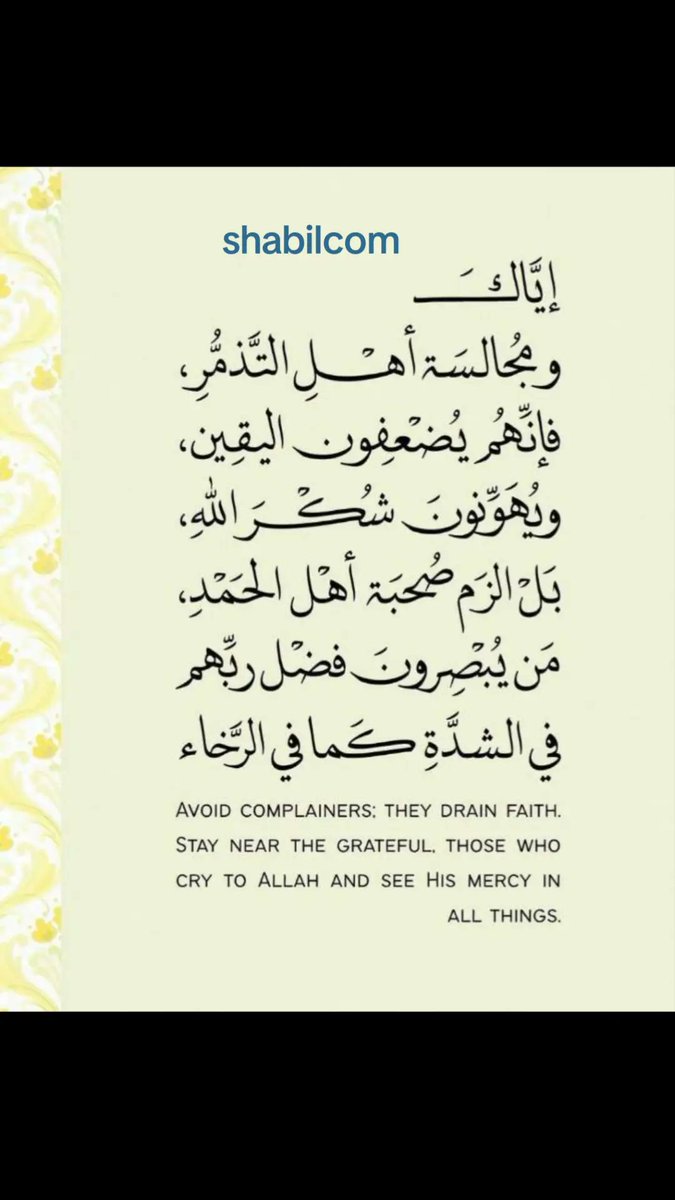 shabilcom
إيَّاكَ
ومُجالسَة أهْلِ التَّذمُّرِ،
فإنَّهُم يُضْعِفون اليقِين،
ويُهَوِّنونَ شُكْرَ اللهِ،
بَلْ الزَم صُحبَة أهْل الحَمْدِ،
مَن يُبْصِرونَ فضْل ربِّهم
في الشدَّةِ كَما في الرَّخاء
AVOID COMPLAINERS; THEY DRAIN FAITH.
STAY NEAR THE GRATEFUL, THOSE WHO
CRY TO ALLAH AND SEE HIS MERCY IN
ALL THINGS.